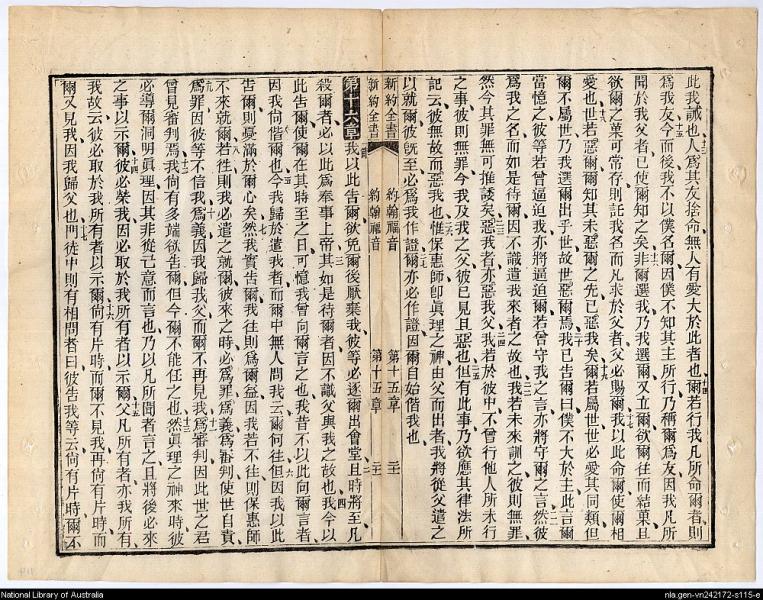 此我誡也人爲其友捨命無人有愛大於此者也爾若行我凡所命爾者則
爲我友今而後我不以僕名爾因僕不知其主所行乃稱爾爲友因我凡所
聞於我父者已使爾知之矣非爾選我乃我選爾又立爾欲爾往而結菓且
欲爾之菓可常存則託我名而凡求於父者父必賜爾我以此命爾使爾相
愛也世若惡爾爾知其未惡爾之先已惡我矣爾若屬世世必愛其同類但
爾不屬世乃我選爾出乎世故世惡爾焉我已告爾曰僕不大於主此言爾
當憶之彼等若曾逼迫我亦將逼迫爾若曾守我之言亦將守爾之言然彼
爲我之名而如是待爾因不識遣我來者之故也我若未來訓之彼則無罪
然今其罪無可推諉矣惡我者亦惡我父我若於彼中不曾行他人所未行
之事彼則無罪今我及我之父彼已見且惡也但有此事乃欲應其律法所
記云彼無故而惡我也惟保惠師卽眞理之神由父而出者我將從父遣之
以就爾彼旣至必爲我作證爾亦必作證因爾自始偕我也
新約全書 約翰福音 第十五章
新約全書 約翰福音 第十五章
第十六章 我以此告爾欲免爾後厭棄我彼等必逐爾出會堂且時將至凡
殺爾者必以此爲奉事上帝其如是待爾者因不識父與我之故也我今以
此告爾使爾在其時至之日可憶我曾向爾言之也我昔不以此向爾言者
因我尙偕爾也今我歸於遣我者而爾中無人問我云爾何往但因我以此
告爾則憂滿於爾心矣然我實告爾我往則爲爾益因我若不往則保惠師
不來就爾若往則我必遣之就爾彼來之時必爲罪爲義爲審判使世自責
爲罪因彼等不信我爲義因我歸我父而爾不再見我爲審判因此世之君
曾見審判焉我尙有多端欲告爾但今爾不能任之也然眞理之神來時彼
必導爾洞明眞理因其非從己意而言也乃以凡所聞者言之且將後必來
之事以示爾彼必榮我因必取於我所有者以示爾父凡所有者亦我所有
我故云彼必取於我所有者以示爾尙有片時而爾不見我再尙有片時而
爾又見我因我歸父也門徒中則有相問者曰彼告我等云尙有片時爾不
National Library of Australia
nla.gen-vn242172-s115-e